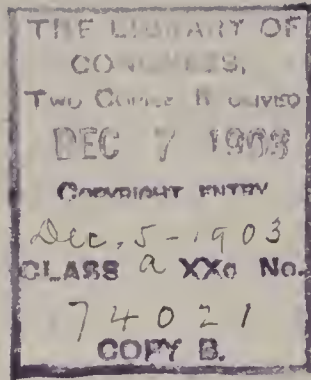 THE LIBRARY OF
CONGRESS,
Two Copies Received
DEC 7 1903
COPYRIGHT ENTRY
Dec. 5-1903
CLASS a XXc No.
74021
COPY B.